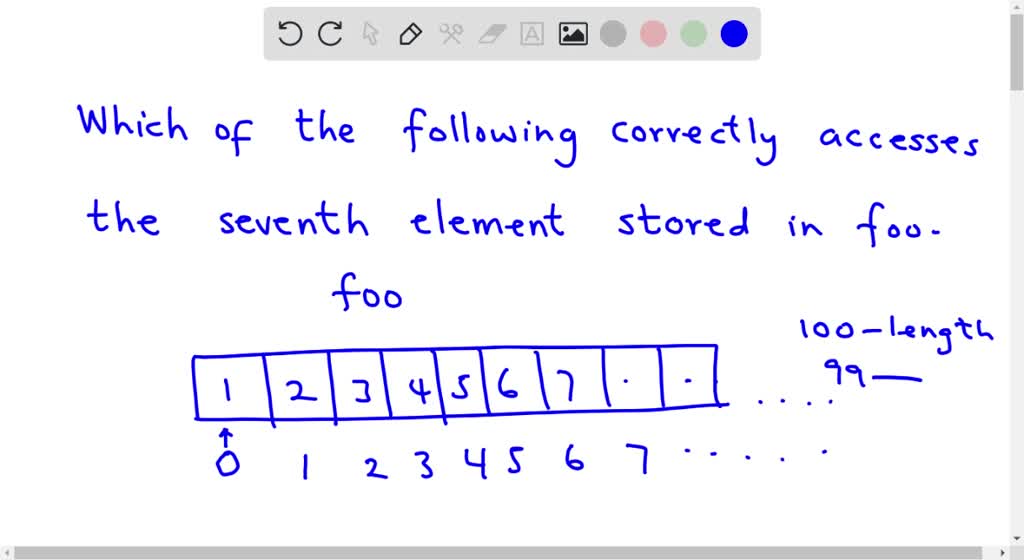 Which of the following correctly accesses
the seventh element stored in foo.
foo
100-length
99—
1 2 3 4 5 6 7 . . ....
0 1 2 3 4 5 6 7 .....